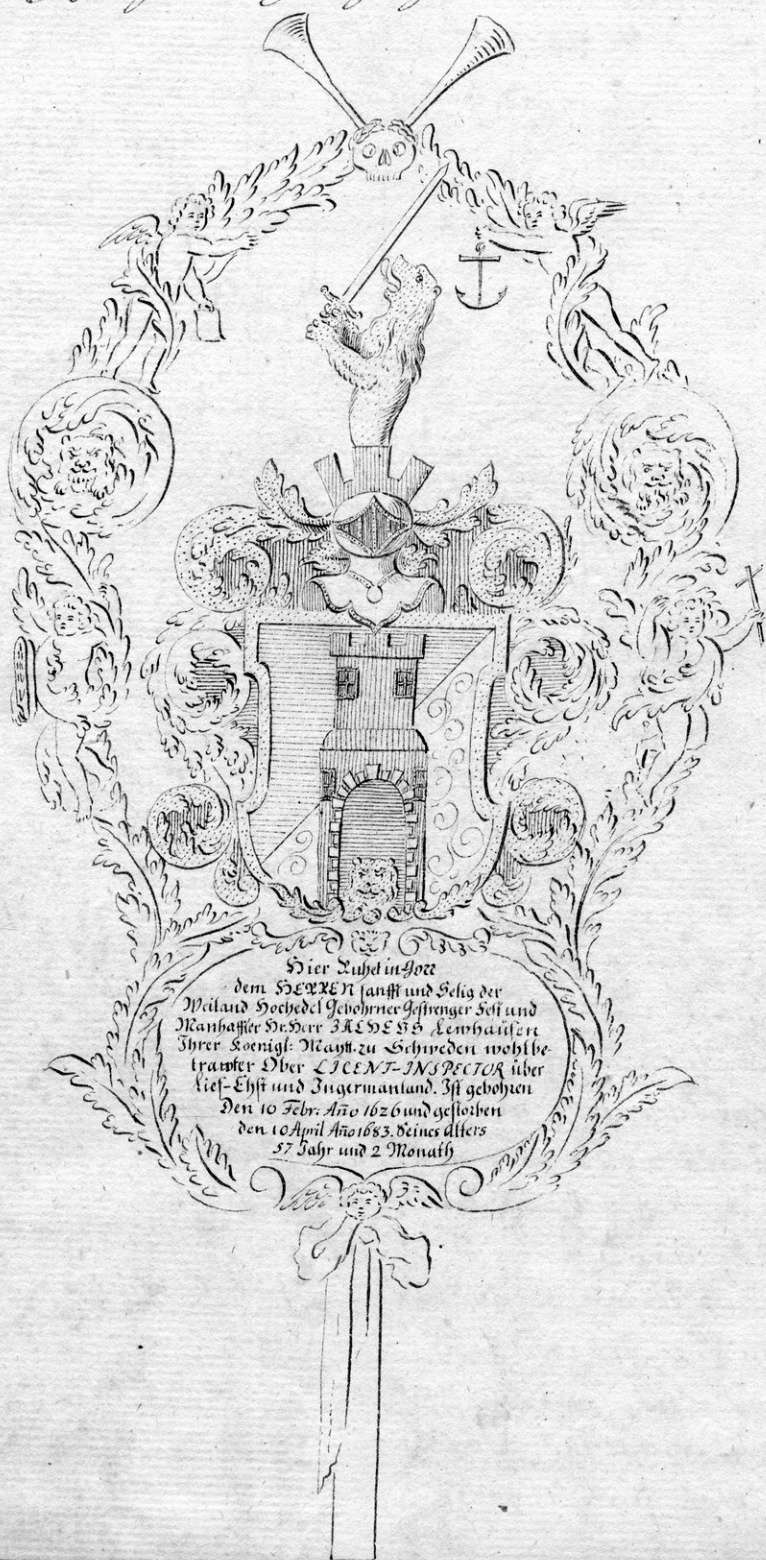 Hier Ruhet in Gott
dem HERREN sanfft und Selig der
Weiland Hochedel Gebohrner Gestrenger Fest und
Manhaffter Hr. Herr Lewhausen
Ihrer Koenigl: Maytt. zu Schweden wohlbe-
trawter Ober LICENT-INSPECTOR über
Lief-Ehst und Ingermanland. Ist gebohren
Den 10 Febr: Año 1626 und gestorben
den 10 April Año 1683. Seines Alters
57 Jahr und 2 Monath